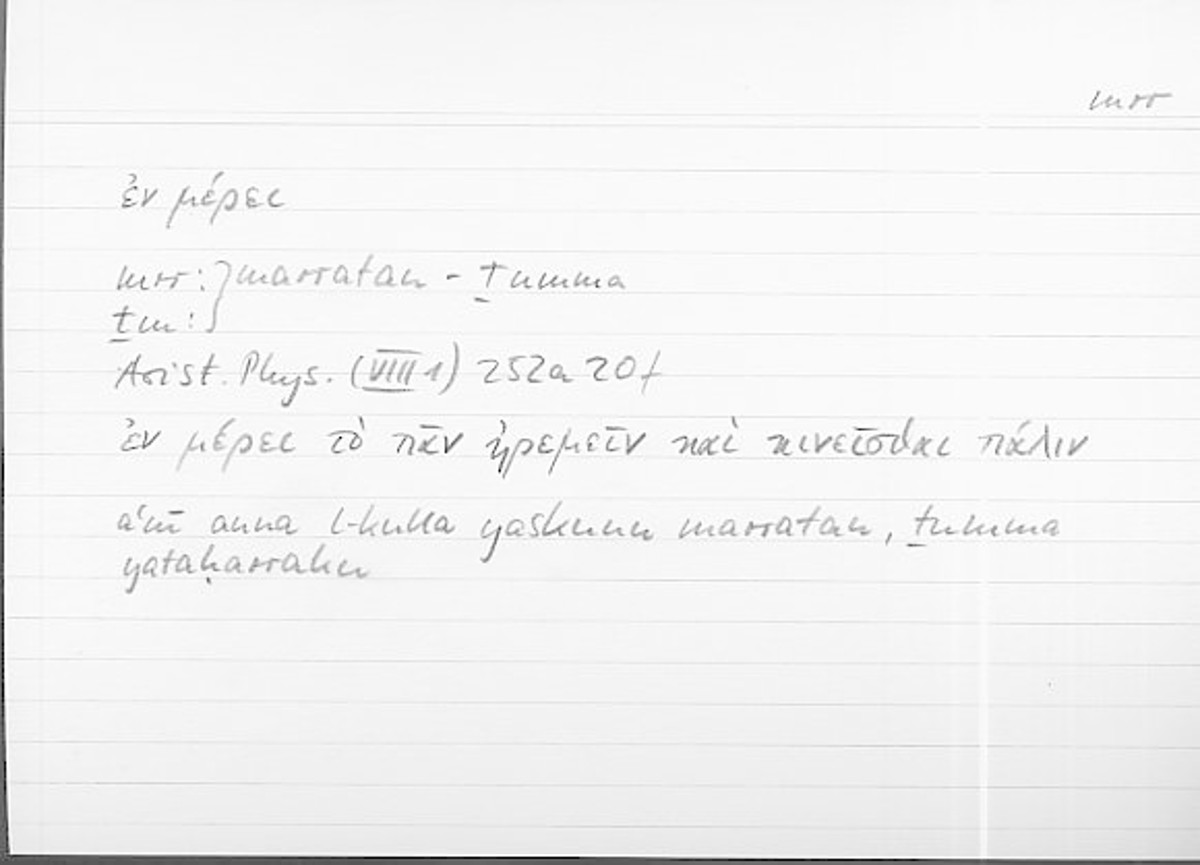 mrr
ἐν μέρει
mrr: } marratan - ṯumma
ṯm:
Arist. Phys. (VIII 1) 252a 20f
ἐν μέρει τὸ πᾶν ἠρεμεῖν καὶ κινεῖσθαι πάλιν
aʿnī anna l-kulla yaskunu marratan, ṯumma
yataḥarraku